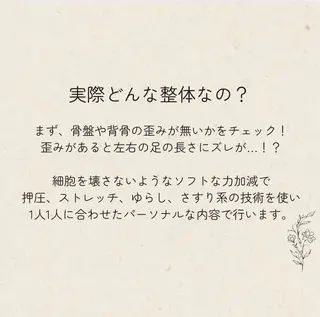 実際どんな整体なの？
まず、骨盤や背骨の歪みが無いかをチェック！
歪みがあると左右の足の長さにズレが…！？
細胞を壊さないようなソフトな力加減で
押圧、ストレッチ、ゆらし、さすり系の技術を使い
1人1人に合わせたパーソナルな内容で行います。